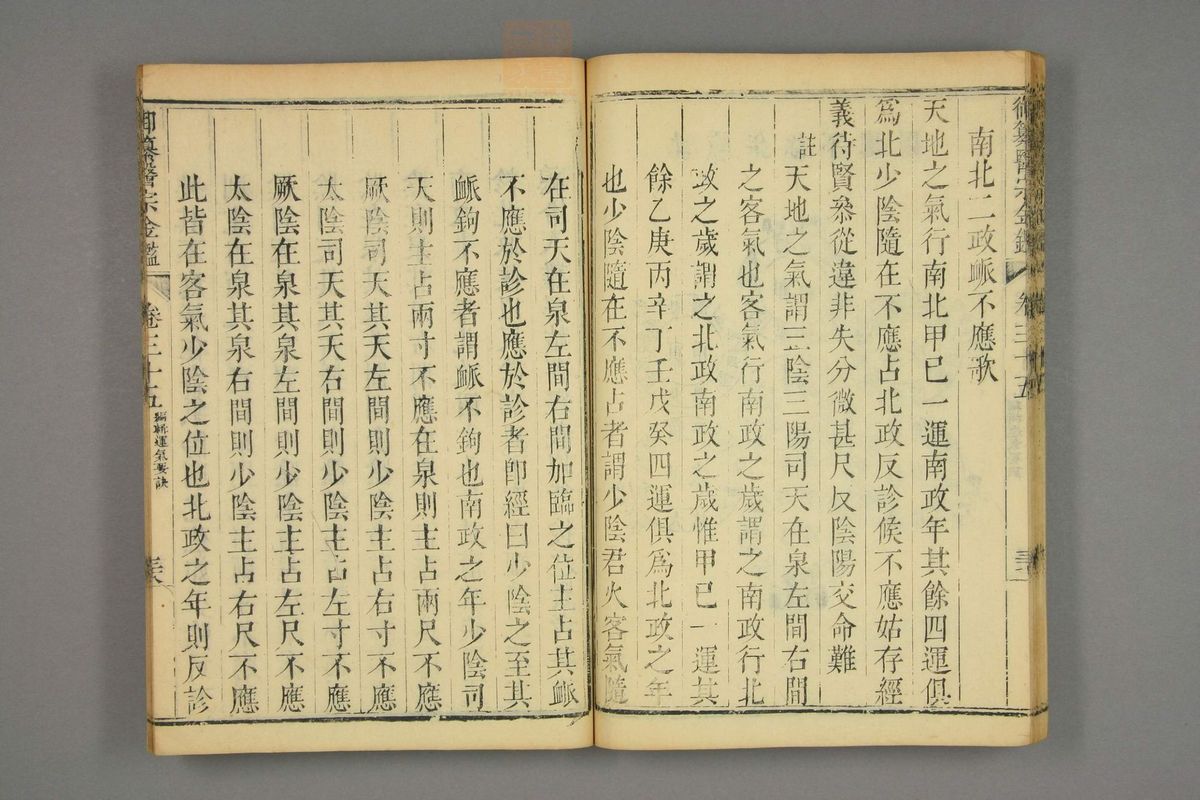 御纂醫宗金鑑 卷三十五
南北二政䘑不應歌
天地之氣行南北甲巳一運南政年其餘四運俱
爲北少陰隨在不應占北政反診候不應姑存經
義待賢叅從違非失分微甚尺反陰陽交命難
註天地之氣謂三陰三陽司天在泉左間右間
之客氣也客氣行南政之歲謂之南政行北
政之歲謂之北政南政之歲惟甲巳一運其
餘乙庚丙辛丁壬戊癸四運俱爲北政之年
也少陰隨在不應占者謂少陰君火客氣隨
在司天在泉左間右間加臨之位主占其䘑
不應於診也應於診者卽經曰少陰之至其
䘑鉤不應者謂䘑不鉤也南政之年少陰司
天則主占兩寸不應在泉則主占兩尺不應
厥陰司天其天左間則少陰主占右寸不應
太陰司天其天右間則少陰主占左寸不應
厥陰在泉其泉左間則少陰主占左尺不應
太陰在泉其泉右間則少陰主占右尺不應
此皆在客氣少陰之位也北政之年則反診
御纂醫宗金鑑 卷三十五 編輯運氣要訣 三六